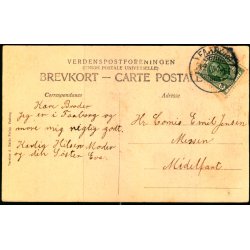 VERDENSPOSTFORENINGEN
(UNION POSTALE UNIVERSELLE)
BREVKORT – CARTE POSTALE
Correspondance
Adresse
Kære Broder
Jeg er i Faaborg og
more mig rigtig godt.
Kærlig Hilsen Moder
og din Søster Eva.
Hr Comis Emil Jensen
Messen
Midelfart